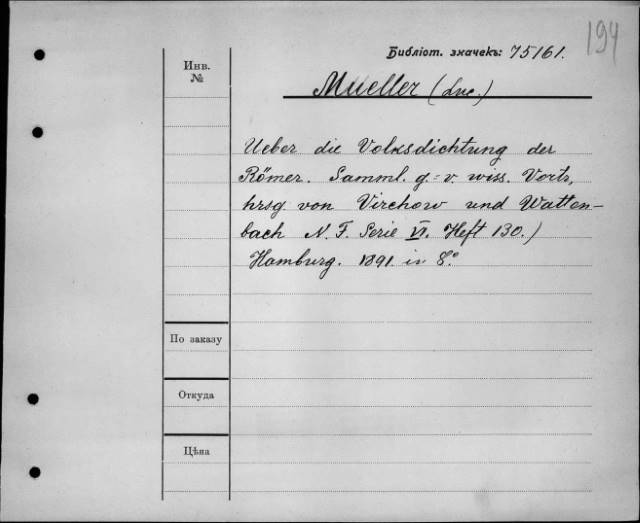 194
Библіот. значекъ: 75161.
Инв.
№
Mueller (Luc.)
Ueber die Volksdichtung der
Römer. Samml. g.-v. wiss. Vortr,
hrsg von Virchow und Watten-
bach N. F. Serie VI. Heft 130.)
Hamburg. 1891. in 8.°
По заказу
Откуда
Цѣна